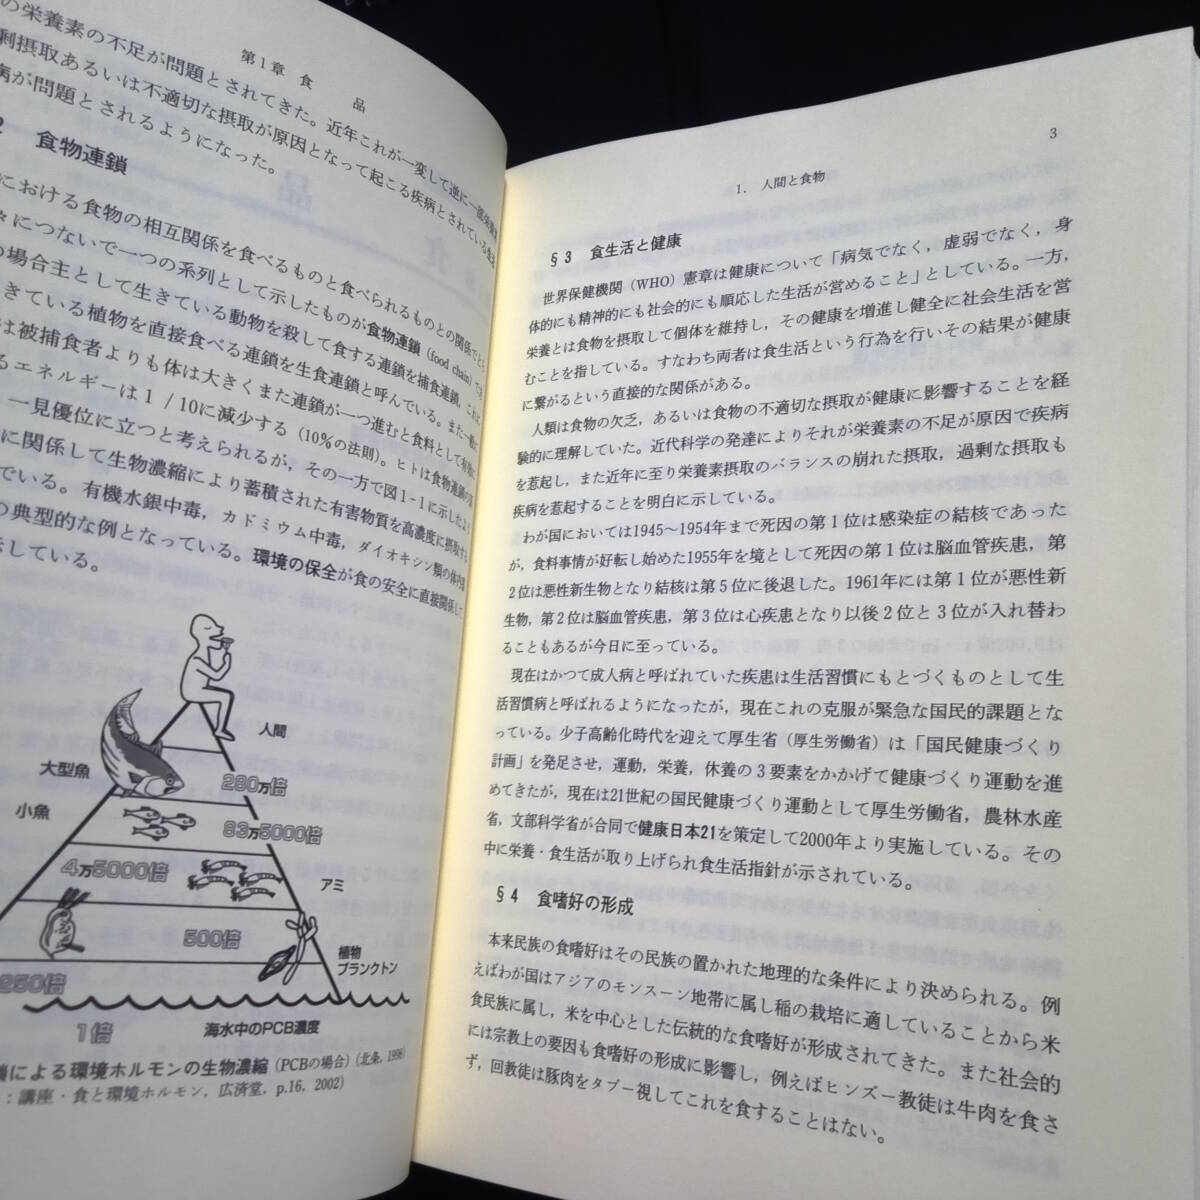 第1章 食 品
の栄養素の不足が問題とされてきた。近年これが一変して逆に一部栄養素
剰摂取あるいは不適切な摂取が原因となって起こる疾病とされている生活
病が問題とされるようになった。
2 食物連鎖
における食物の相互関係を食べるものと食べられるものとの関係でとら
々につないで一つの系列として示したものが食物連鎖 (food chain) であ
の場合主として生きている動物を殺して食する連鎖を捕食連鎖,これに
きている植物を直接食べる連鎖を生食連鎖と呼んでいる。また一般に
は被捕食者よりも体は大きくまた連鎖が一つ進むと食料として有効に
るエネルギーは1/10に減少する(10%の法則)。ヒトは食物連鎖の
一見優位に立つと考えられるが,その一方で図1-1に示したよう
に関係して生物濃縮により蓄積された有害物質を高濃度に摂取する
でいる。有機水銀中毒,カドミウム中毒,ダイオキシン類の体内
の典型的な例となっている。環境の保全が食の安全に直接関係して
示している。
人間
大型魚
280万倍
小魚
83万5000倍
4万5000倍
アミ
500倍
植物
プランクトン
250倍
1倍
海水中のPCB濃度
鎖による環境ホルモンの生物濃縮 (PCBの場合) (北条, 1998)
:講座・食と環境ホルモン, 広済堂, p.16, 2002)
3
1. 人間と食物
§3 食生活と健康
世界保健機関(WHO)憲章は健康について「病気でなく,虚弱でなく,身
体的にも精神的にも社会的にも順応した生活が営めること」としている。一方,
栄養とは食物を摂取して個体を維持し,その健康を増進し健全に社会生活を営
むことを指している。すなわち両者は食生活という行為を行いその結果が健康
に繋がるという直接的な関係がある。
人類は食物の欠乏,あるいは食物の不適切な摂取が健康に影響することを経
験的に理解していた。近代科学の発達によりそれが栄養素の不足が原因で疾病
を惹起し,また近年に至り栄養素摂取のバランスの崩れた摂取,過剰な摂取も
疾病を惹起することを明白に示している。
わが国においては1945~1954年まで死因の第1位は感染症の結核であった
が,食料事情が好転し始めた1955年を境として死因の第1位は脳血管疾患,第
2位は悪性新生物となり結核は第5位に後退した。1961年には第1位が悪性新
生物,第2位は脳血管疾患,第3位は心疾患となり以後2位と3位が入れ替わ
ることもあるが今日に至っている。
現在はかつて成人病と呼ばれていた疾患は生活習慣にもとづくものとして生
活習慣病と呼ばれるようになったが,現在これの克服が緊急な国民的課題とな
っている。少子高齢化時代を迎えて厚生省(厚生労働省)は「国民健康づくり
計画」を発足させ,運動,栄養,休養の3要素をかかげて健康づくり運動を進
めてきたが,現在は21世紀の国民健康づくり運動として厚生労働省,農林水産
省,文部科学省が合同で健康日本21を策定して2000年より実施している。その
中に栄養・食生活が取り上げられ食生活指針が示されている。
§4 食嗜好の形成
本来民族の食嗜好はその民族の置かれた地理的な条件により決められる。例
えばわが国はアジアのモンスーン地帯に属し稲の栽培に適していることから米
食民族に属し,米を中心とした伝統的な食嗜好が形成されてきた。また社会的
には宗教上の要因も食嗜好の形成に影響し,例えばヒンズー教徒は牛肉を食さ
ず,回教徒は豚肉をタブー視してこれを食することはない。